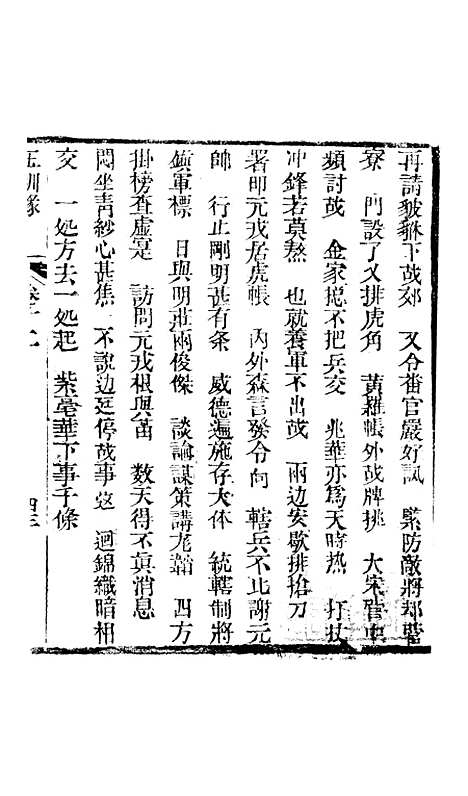 再請貔貅下战郊　又令畨官嚴好訊　緊防敵將郏營
寮　門設了又排虎角　黃羅帳外战牌挑　大宋营中
頻討战　金家總不把兵交　兆華亦爲天時热　打仗
冲鋒若莫熬　也就養軍不出战　兩边安歇排搶刀
署印元戎居虎帳　內外森言發令向　轄兵不比謝元
帥　行止剛明甚有条　威德遍施存大体　統轄制將
鎮軍標　日與明莊兩俊傑　談論謀策講尨韜　四方
掛榜查虛寔　訪問元戎根與苗　数天得不真消息
悶坐青紗心甚焦　不說边廷停战事　这　迴錦織暗相
交　一处方去一处起　紫毫華下事千條
玉釧緣　卷十一　四三